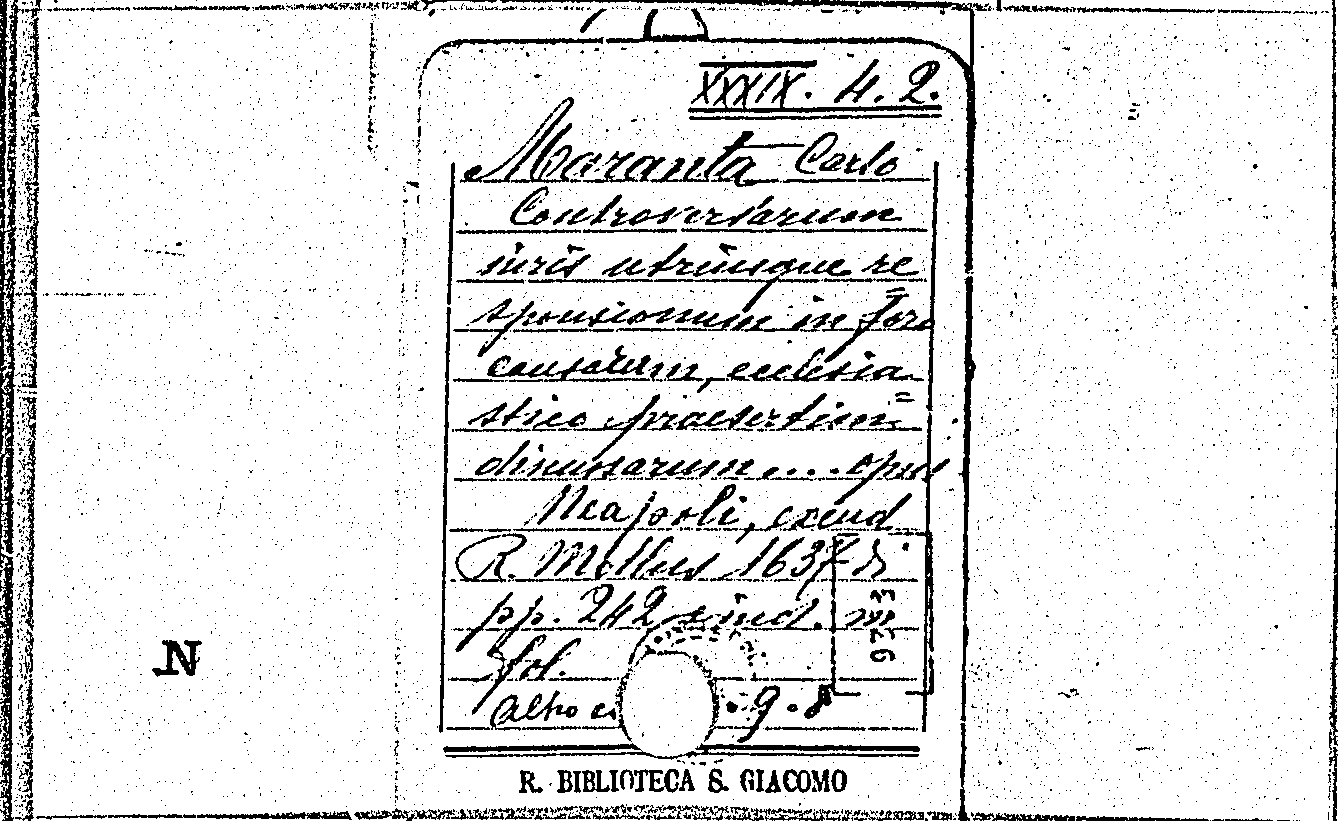 XXXIX. 4. 2.
Maranta Carlo
Controversiarum
iuris utriusque re
sponsionum in foro
causarum, ecclesia=
stico praesertim
discussarum .... opus
Neapoli, excud
R. Mollus 1637 di
pp. 242 s. ind. in
fol.
altro es . 9. 8
933
N
R. BIBLIOTECA S. GIACOMO